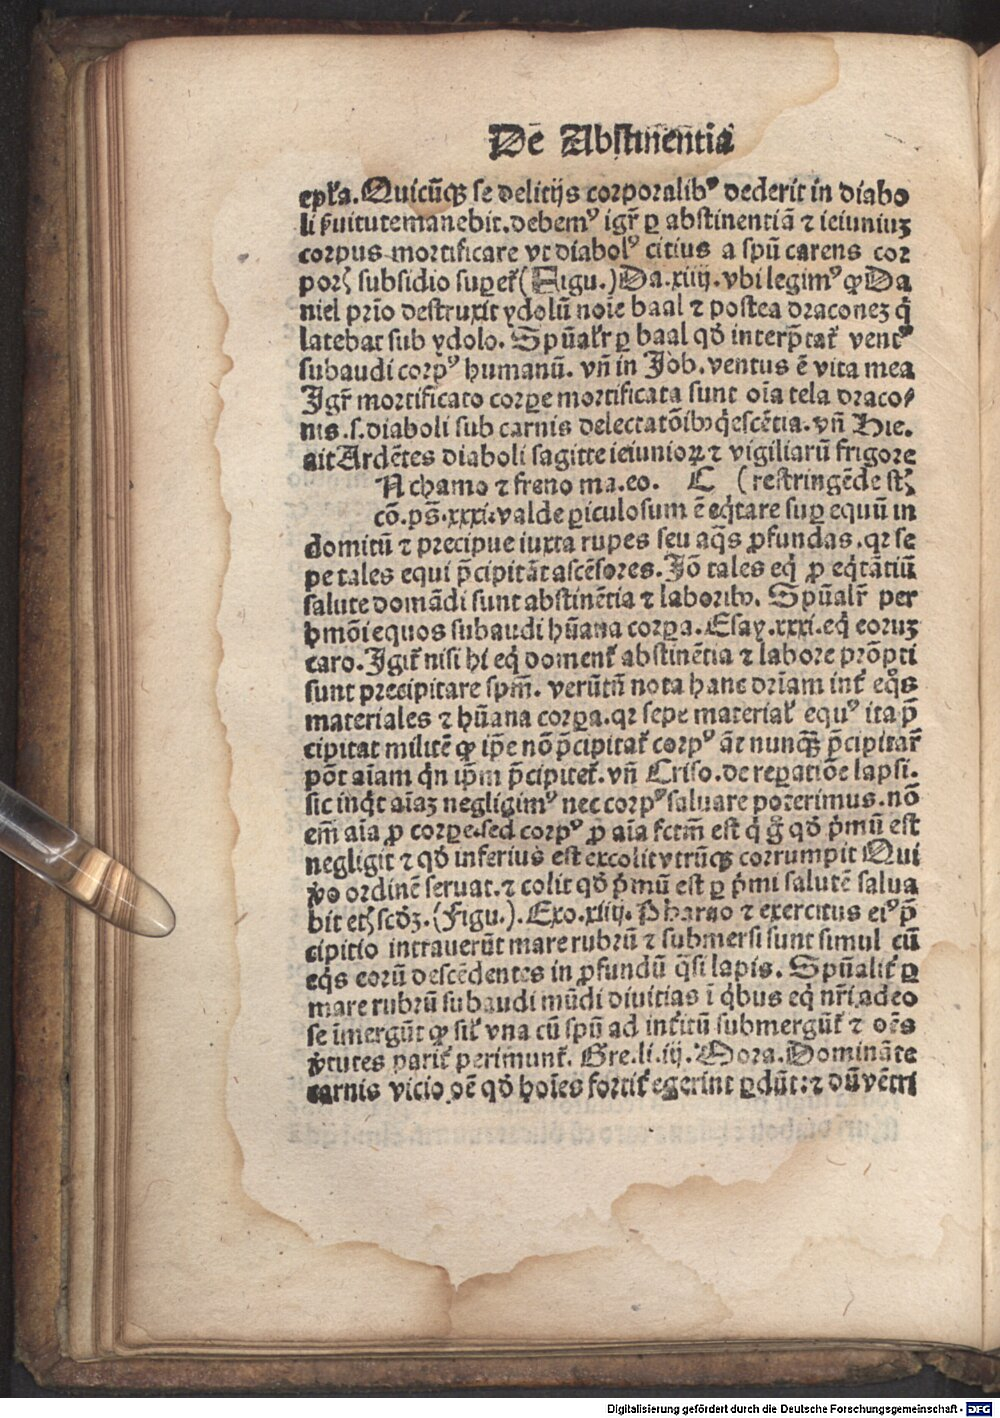 De Abstinentia
epl'a. Quicūqꝫ se delitijs corporalibꝰ dederit in diabo
li ẜuitute manebit. debemꝰ igr̄ ꝑ abstinentiā ⁊ ieiuniuꝫ
corpus mortificare vt diabolꝰ citius a spū carens cor
porꝭ subsidio suꝑet᷑ (Figu.) Da. xiiij. vbi legimꝰ ꝙ Da
niel prīo destruxit ydolū noīe baal ⁊ postea draconeꝫ q̇
latebat sub ydolo. Spūalr̄ ꝑ baal qd̓ interp̄tat᷑ ventꝰ
subaudi corpꝰ humanū. vn̄ in Job. ventus ē vita mea
Igr̄ mortificato corꝑe mortificata sunt oīa tela draco/
nis .s. diaboli sub carnis delectatōibꝫ q̇escētia. vn̄ Hie.
ait Ardētes diaboli sagitte ieiunioꝝ ⁊ vigiliarū frigore
N chamo ⁊ freno ma. eo. C ( restringēde st̄ꝭ
cō. ps̄. xxxi. valde ꝑiculosum ē eq̇tare suꝑ equū in
domitū ⁊ precipue iuxta rupes seu aq̄s ꝓfundas. qr se
pe tales equi p̄cipitāt ascēsores. Jō tales eq̇ ꝓ eq̇tātiū
salute domādi sunt abstinētia ⁊ laboribꝫ. Spūalr̄ per
hmōi equos subaudi hūana corꝑa. Esay. xxxi. eq̇ eoruꝫ
caro. Igit᷑ nisi hi eq̇ doment᷑ abstinētia ⁊ labore prōpti
sunt precipitare spm̄. verūtn̄ nota hanc dr̄iam int᷑ eq̊s
materiales ⁊ hūana corꝑa. qr sepe material᷑ equꝰ ita p̄
cipitat militē ꝙ ip̄e nō p̄cipitat᷑ corpꝰ āt nunqꝫ̄ p̄cipitar̄
pōt aīam q̇n ip̄m p̄cipitet᷑. vn̄ Criso. de reꝑatiōe lapsi.
sic inq̇t aīaꝫ negligimꝰ nec corpꝰ saluare poterimus. nō
em̄ aīa ꝓ corꝑe. sed corpꝰ ꝓ aīa fctm̄ est q̇ g̊ qd̓ p̓mū est
negligit ⁊ qd̓ inferius est excolit vtrūqꝫ corrumpit Qui
v̓o ordinē seruat. ⁊ colit qd̓ p̓mū est ꝑ p̓mi salutē salua
bit etꝭ scd̓ꝫ. (Figu.). Exo. xiiij. Pharao ⁊ exercitus eiꝰ p̄
cipitio intrauerūt mare rubrū ⁊ submersi sunt simul cū
eq̇s eorū descēdentes in ꝓfundū q̄si lapis. Spūalit᷑ ꝑ
mare rubrū subaudi mūdi diuitias ī q̇bus eq̇ nr̄i adeo
se īmergūt ꝙ sil᷑ vna cū spū ad int᷑itū submergūt᷑ ⁊ oēs
v̓tutes parit᷑ perimunt᷑. Gre. li. iij. Mora. Domināte
carnis vicio oē qd̓ hoīes fortit᷑ egerint ꝑdūt: ⁊ dū vētri
Digitalisierung gefördert durch die Deutsche Forschungsgemeinschaft - DFG